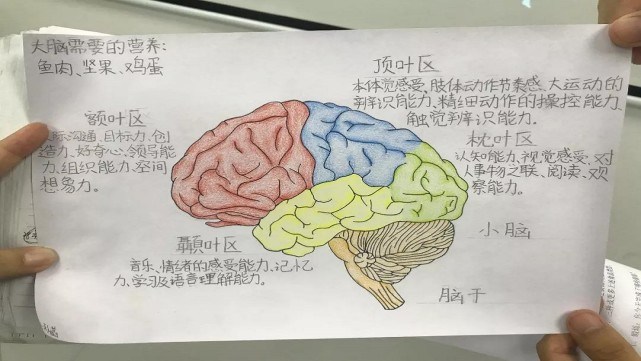 大脑需要的营养:
鱼肉、坚果、鸡蛋
顶叶区
本体觉感受、肢体动作节奏感、大运动的
辨识能力、精细动作的操控能力、
触觉辨识能力。
额叶区
人际沟通、目标力、创
造力、好奇心、领导能
力、组织能力、空间
想象力。
枕叶区
认知能力、视觉感受、对
人事物之联、阅读、观
察能力。
颞叶区
音乐、情绪的感受能力、记忆
力、学习及语言理解能力。
小脑
脑干